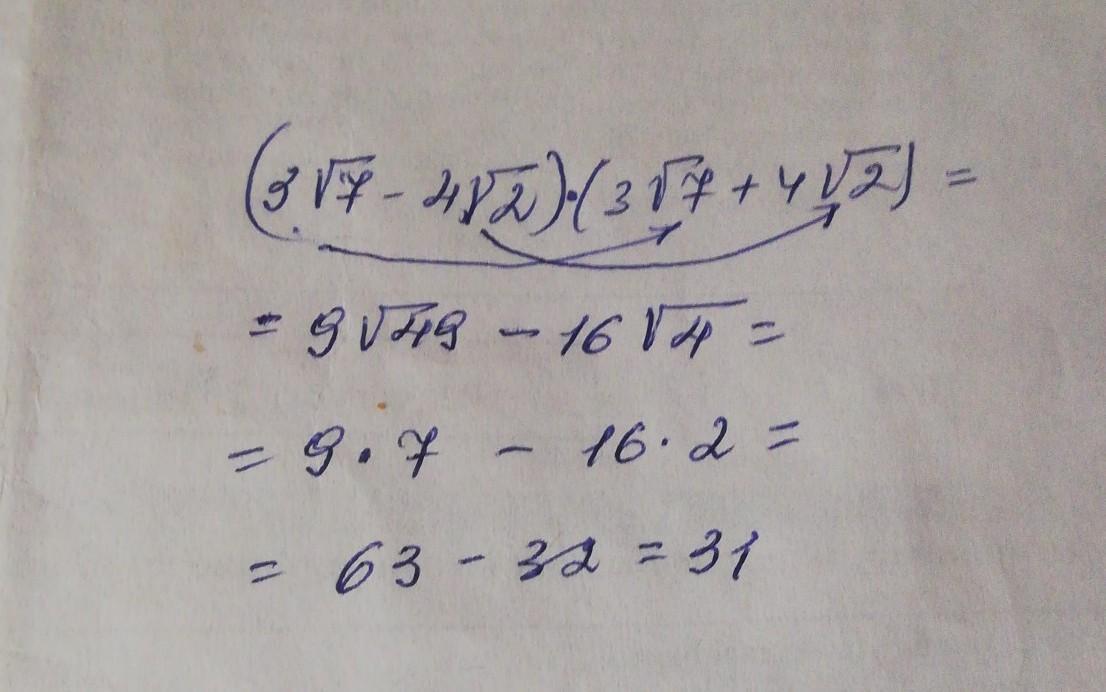 (3√7 - 4√2)·(3√7 + 4√2) =
= 9√49 - 16√4 =
= 9·7 - 16·2 =
= 63 - 32 = 31